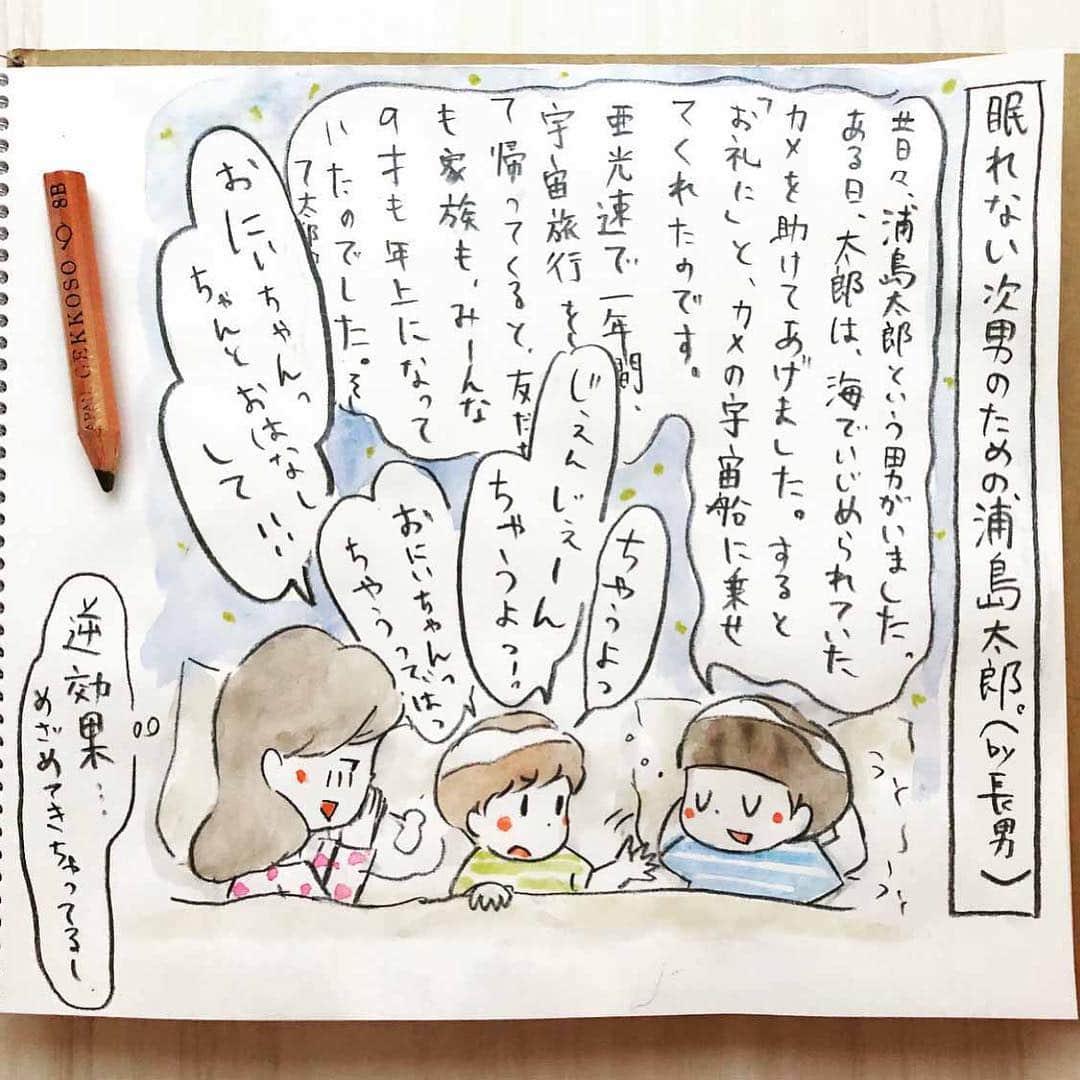 眠れない次男のための浦島太郎。(by 長男)
昔々、浦島太郎という男がいました。
ある日、太郎は、海でいじめられていた
カメを助けてあげました。すると
「お礼に」と、カメの宇宙船に乗せ
てくれたのです。
亜光速で一年間、
宇宙旅行を
て帰ってくると、友だち
も家族も、みーんな
9才も年上になって
いたのでした。そ
て太郎
ちゃうよっ
じぇんじぇーん
ちゃうよっーっ
おにいちゃんっ
ちゃうってばっ
おにいちゃんっ
ちゃんとおはなし
して
うと
逆効果…
めざめてきちゃってるし
8B
GEKKOSO
JAPAN